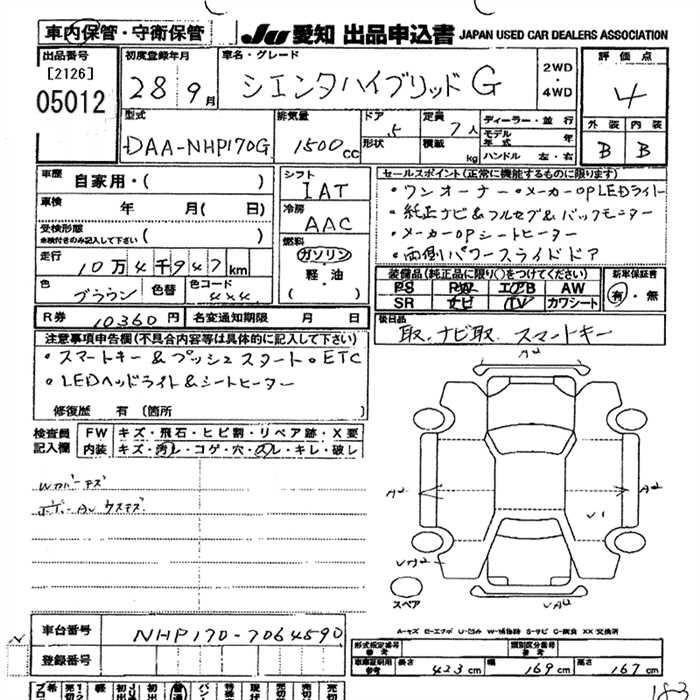 車内保管・守衛保管
JU 愛知 出品申込書 JAPAN USED CAR DEALERS ASSOCIATION
出品番号
[2126]
05012
初度登録年月
28年9月
車名・グレード
シエンタハイブリッドG
2WD
・
4WD
評価点
4
外装 内装
B B
型式
DAA-NHP170G
排気量
1500cc
ドア 5
形状
定員 7人
積載 kg
ディーラー・並行
モデル年式 年
ハンドル 左・右
車歴
自家用・( )
車検 年 月( 日)
受検形態
※検付きのみ記入して下さい ( )
走行 10万4千947km
色 ブラウン 色替 色コード 4X4
シフト
IAT
冷房
AAC
燃料
ガソリン
・
軽・油
( )
セールスポイント(正常に機能するものに限ります)
・ワンオーナー・メーカーOPLEDライト
・純正ナビ&フルセグ&バックモニター
・メーカーOPシートヒーター
・両側パワースライドドア
装備品(純正品に限り○をつけてください)
PS PW エアB AW
SR ナビ TV カワシート
新車保証書
有・無
R券 10360円 名変通知期限 月 日
後日品
取、ナビ取、スマートキー
注意事項申告欄(不具合内容等は具体的に記入して下さい)
・スマートキー&プッシュスタート・ETC
・LEDヘッドライト&シートヒーター
修復歴 有(箇所
検査員記入欄
FW キズ・飛石・ヒビ割・リペア跡・X要
内装 キズ・汚レ・コゲ・穴・スレ・キレ・破レ
Wカバーキズ
A2
A2
A2
V1
スペア
A-キズ E-エクボ U-凹み W-補修跡 S-サビ C-腐食 XX 交換済
車台番号
NHP170-7064590
登録番号
形式指定番号
参考
類別区分番号
参考
車庫証明用
参考
長さ 423cm 幅 169cm 高さ 167cm